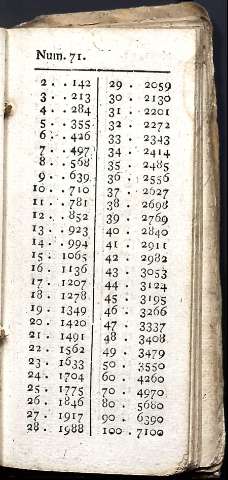 Num. 71.
2 . . 142 29 . 2059
3 . . 213 30 . 2130
4 . . 284 31 . 2201
5 . . 355 32 . 2272
6 . . 426 33 . 2343
7 . . 497 34 . 2414
8 . . 568 35 . 2485
9 . . 639 36 . 2556
10 . . 710 37 . 2627
11 . . 781 38 . 2698
12 . . 852 39 . 2769
13 . . 923 40 . 2840
14 . . 994 41 . 2911
15 . 1065 42 . 2982
16 . 1136 43 . 3053
17 . 1207 44 . 3124
18 . 1278 45 . 3195
19 . 1349 46 . 3266
20 . 1420 47 . 3337
21 . 1491 48 . 3408
22 . 1562 49 . 3479
23 . 1633 50 . 3550
24 . 1704 60 . 4260
25 . 1775 70 . 4970
26 . 1846 80 . 5680
27 . 1917 90 . 6390
28 . 1988 100 . 7100